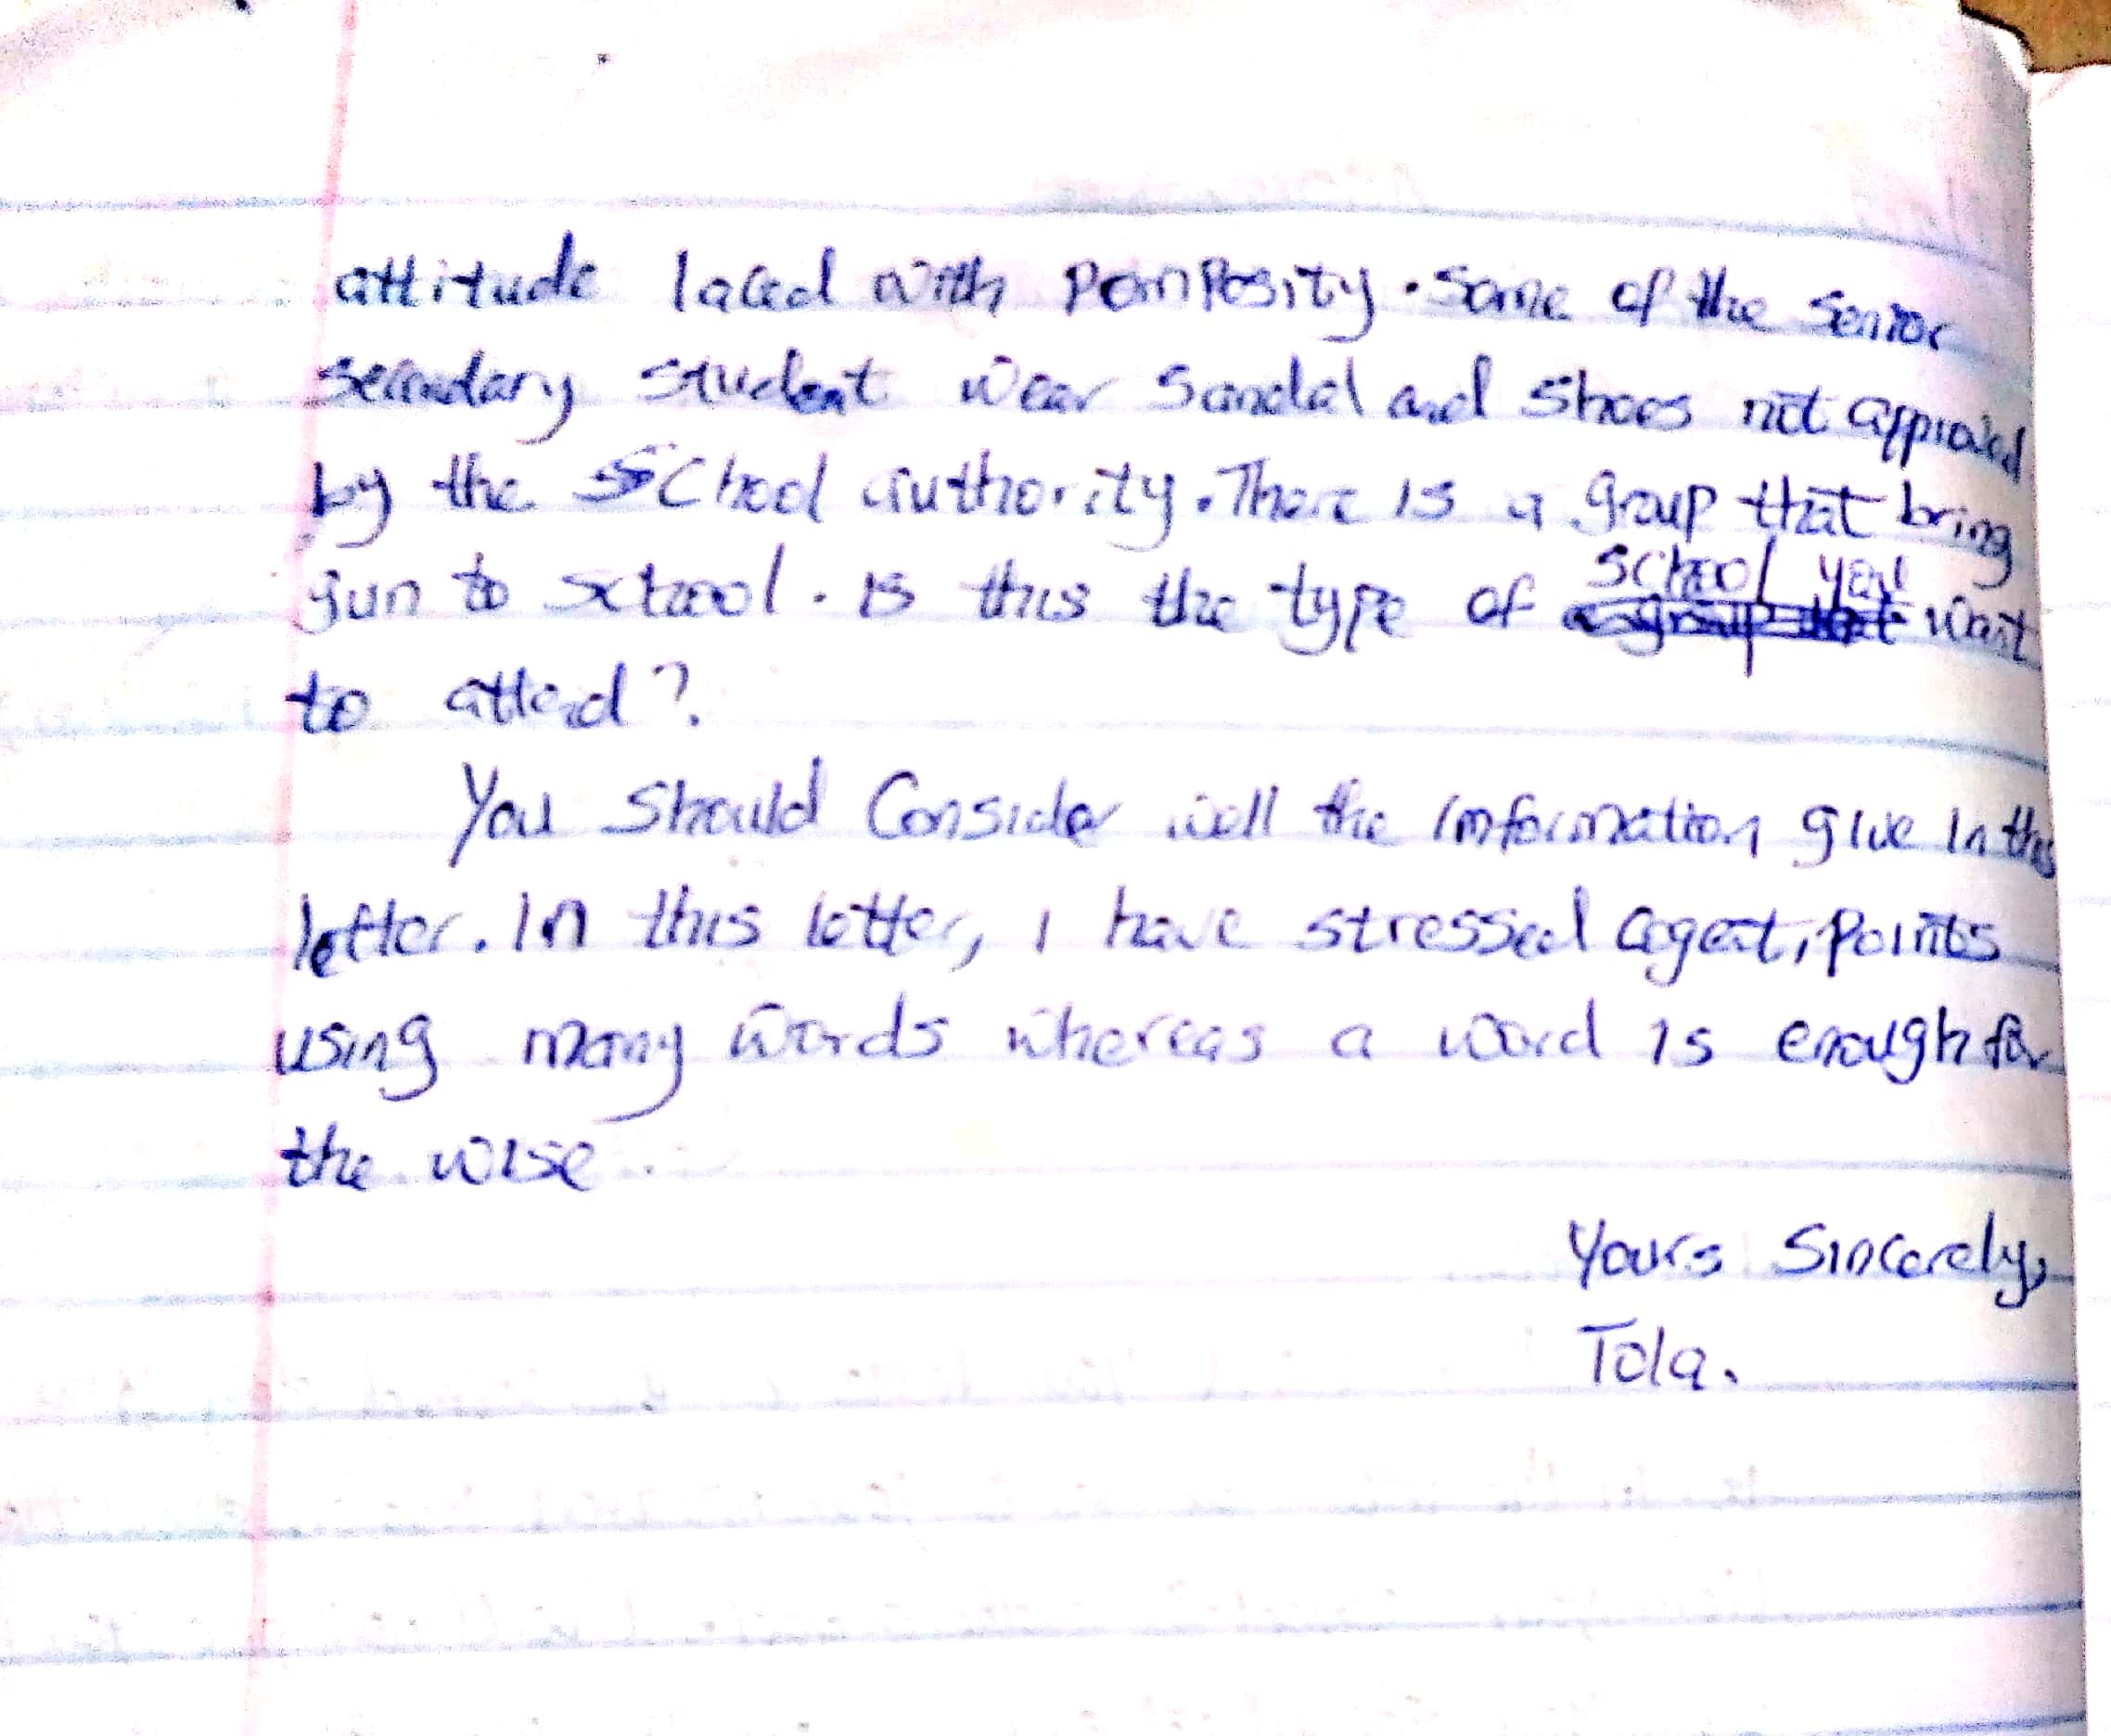 attitude laced with Pomposity. Some of the Senior
secondary student wear Sandal and Shoes not approved
by the SChool authority. There is a group that bring
gun to school. is this the type of school you want
to attend?
You Should Consider well the information give in this
letter. In this letter, I have stressed agent, Points
using many words whereas a word is enough for
the wise.
Yours Sincerely,
Tola.